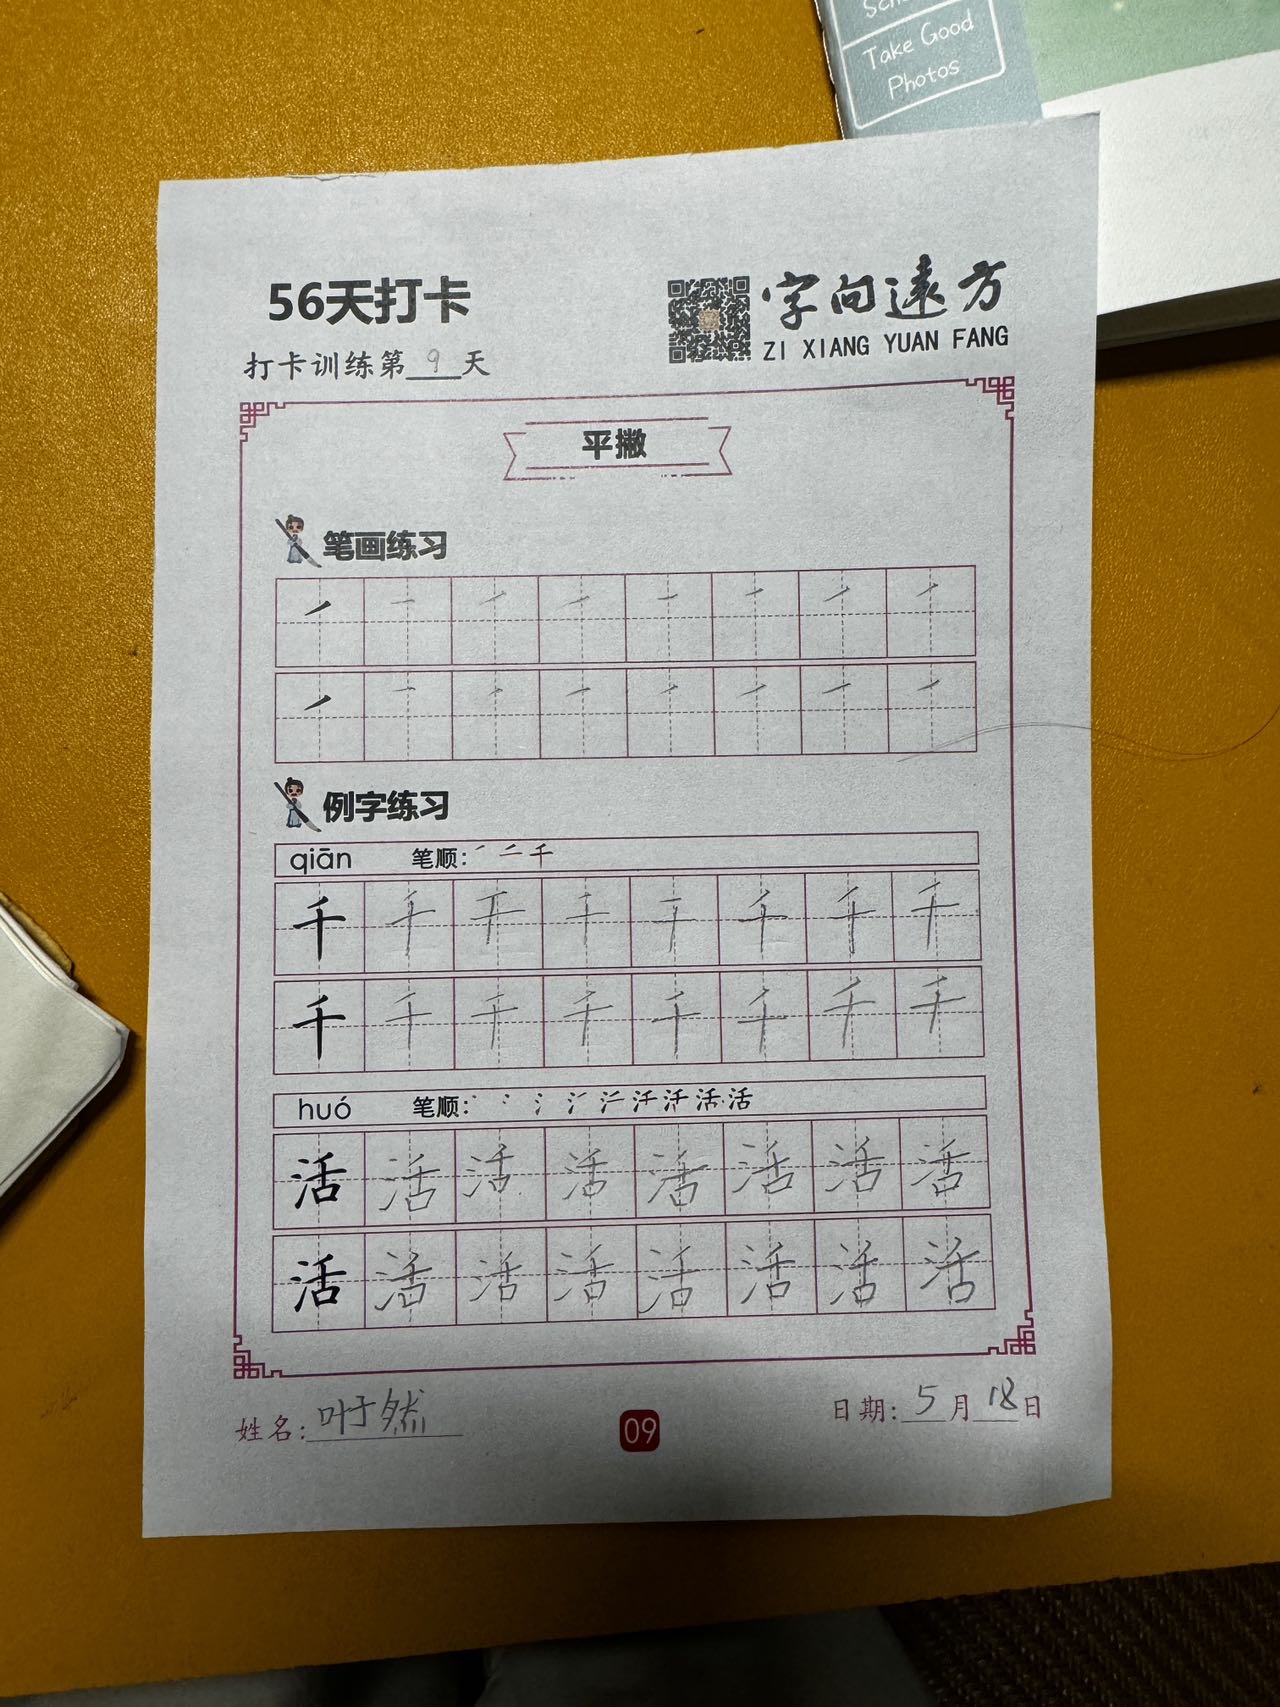 Take Good
Photos
56天打卡
字向遠方
ZI XIANG YUAN FANG
打卡训练第9天
平撇
笔画练习
例字练习
qiān 笔顺: 千
千 千 千 千 千 千 千 千
千 千 千 千 千 千 千 千
huó 笔顺: 活
活 活 活 活 活 活 活 活
活 活 活 活 活 活 活 活
姓名: 叶于然
09
日期: 5月18日